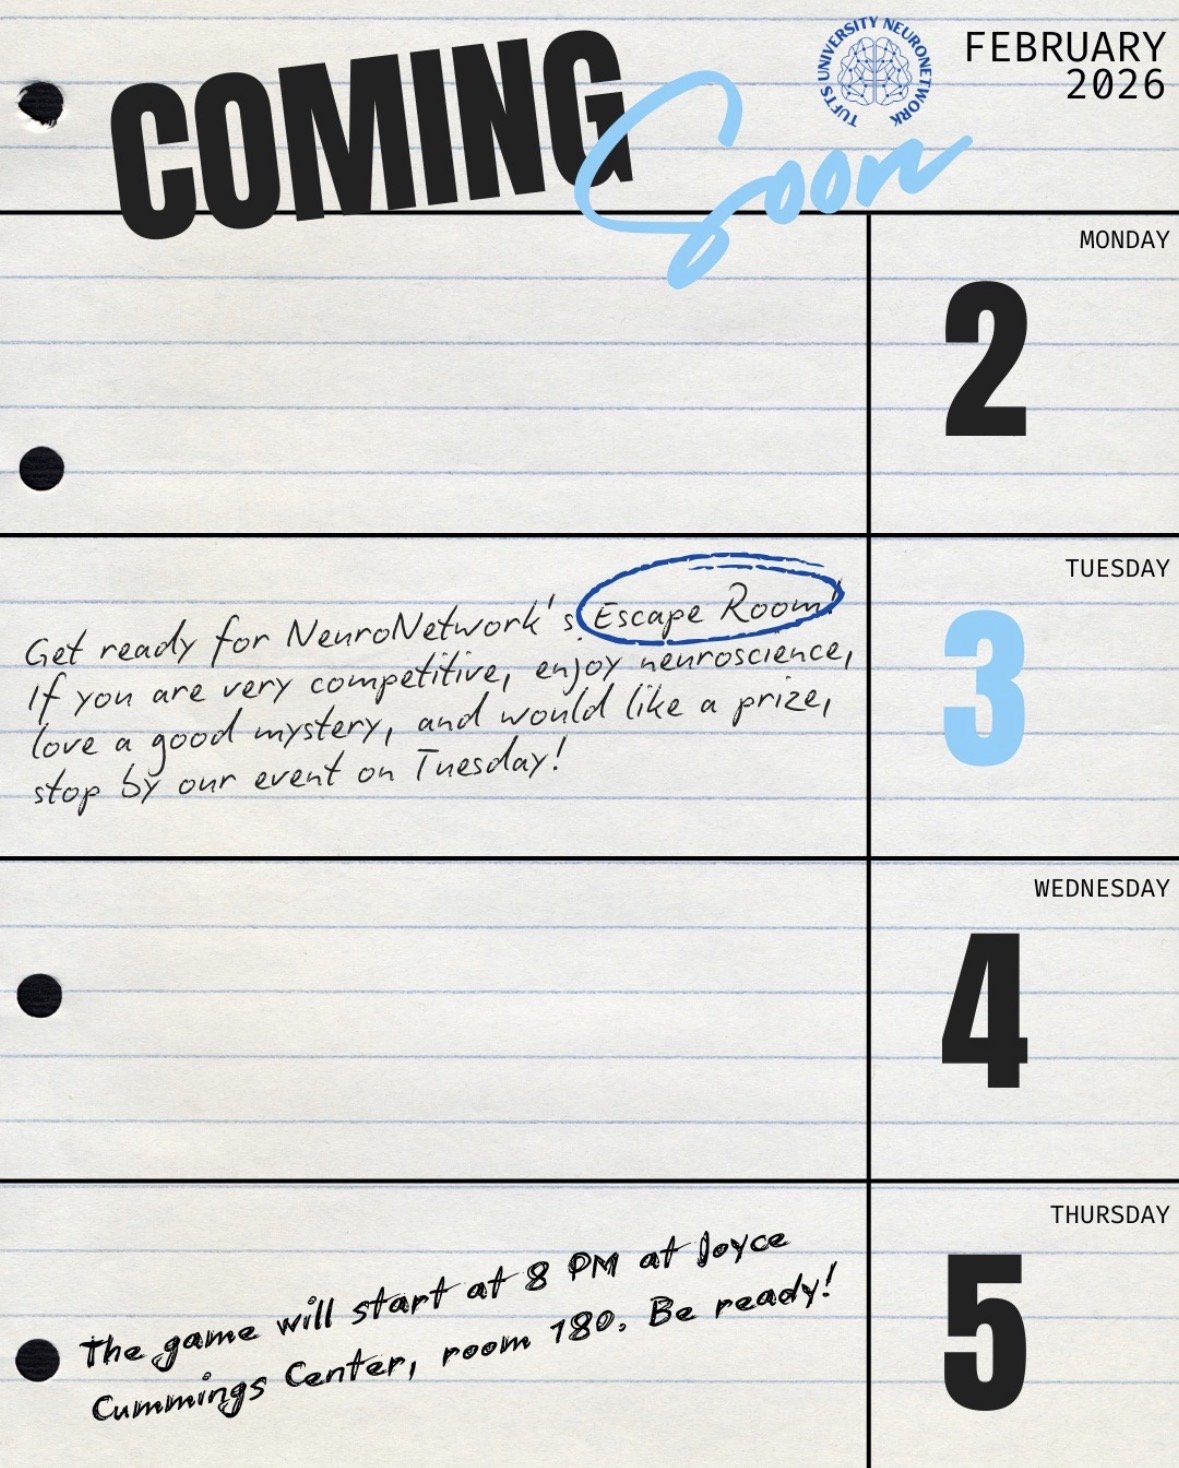 COMING
Soon
TUFTS UNIVERSITY NEURONETWORK
FEBRUARY
2026
MONDAY
2
TUESDAY
3
Get ready for NeuroNetwork's Escape Room!
If you are very competitive, enjoy neuroscience,
love a good mystery, and would like a prize,
stop by our event on Tuesday!
WEDNESDAY
4
THURSDAY
5
The game will start at 8 PM at Joyce
Cummings Center, room 180. Be ready!